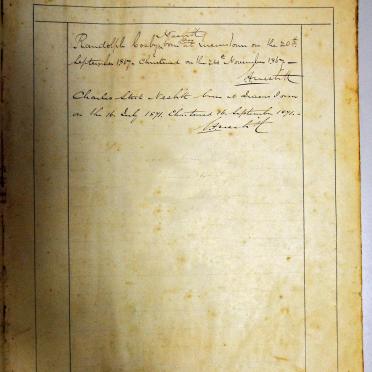 Nesbitt
Randolph Cosby born at Queenstown on the 20th
September 1867. Christened on the 24th November 1867.
ANesbitt
Charles Nesbitt born at Queens Town
on the 16 July 1871. Christened September 1871.